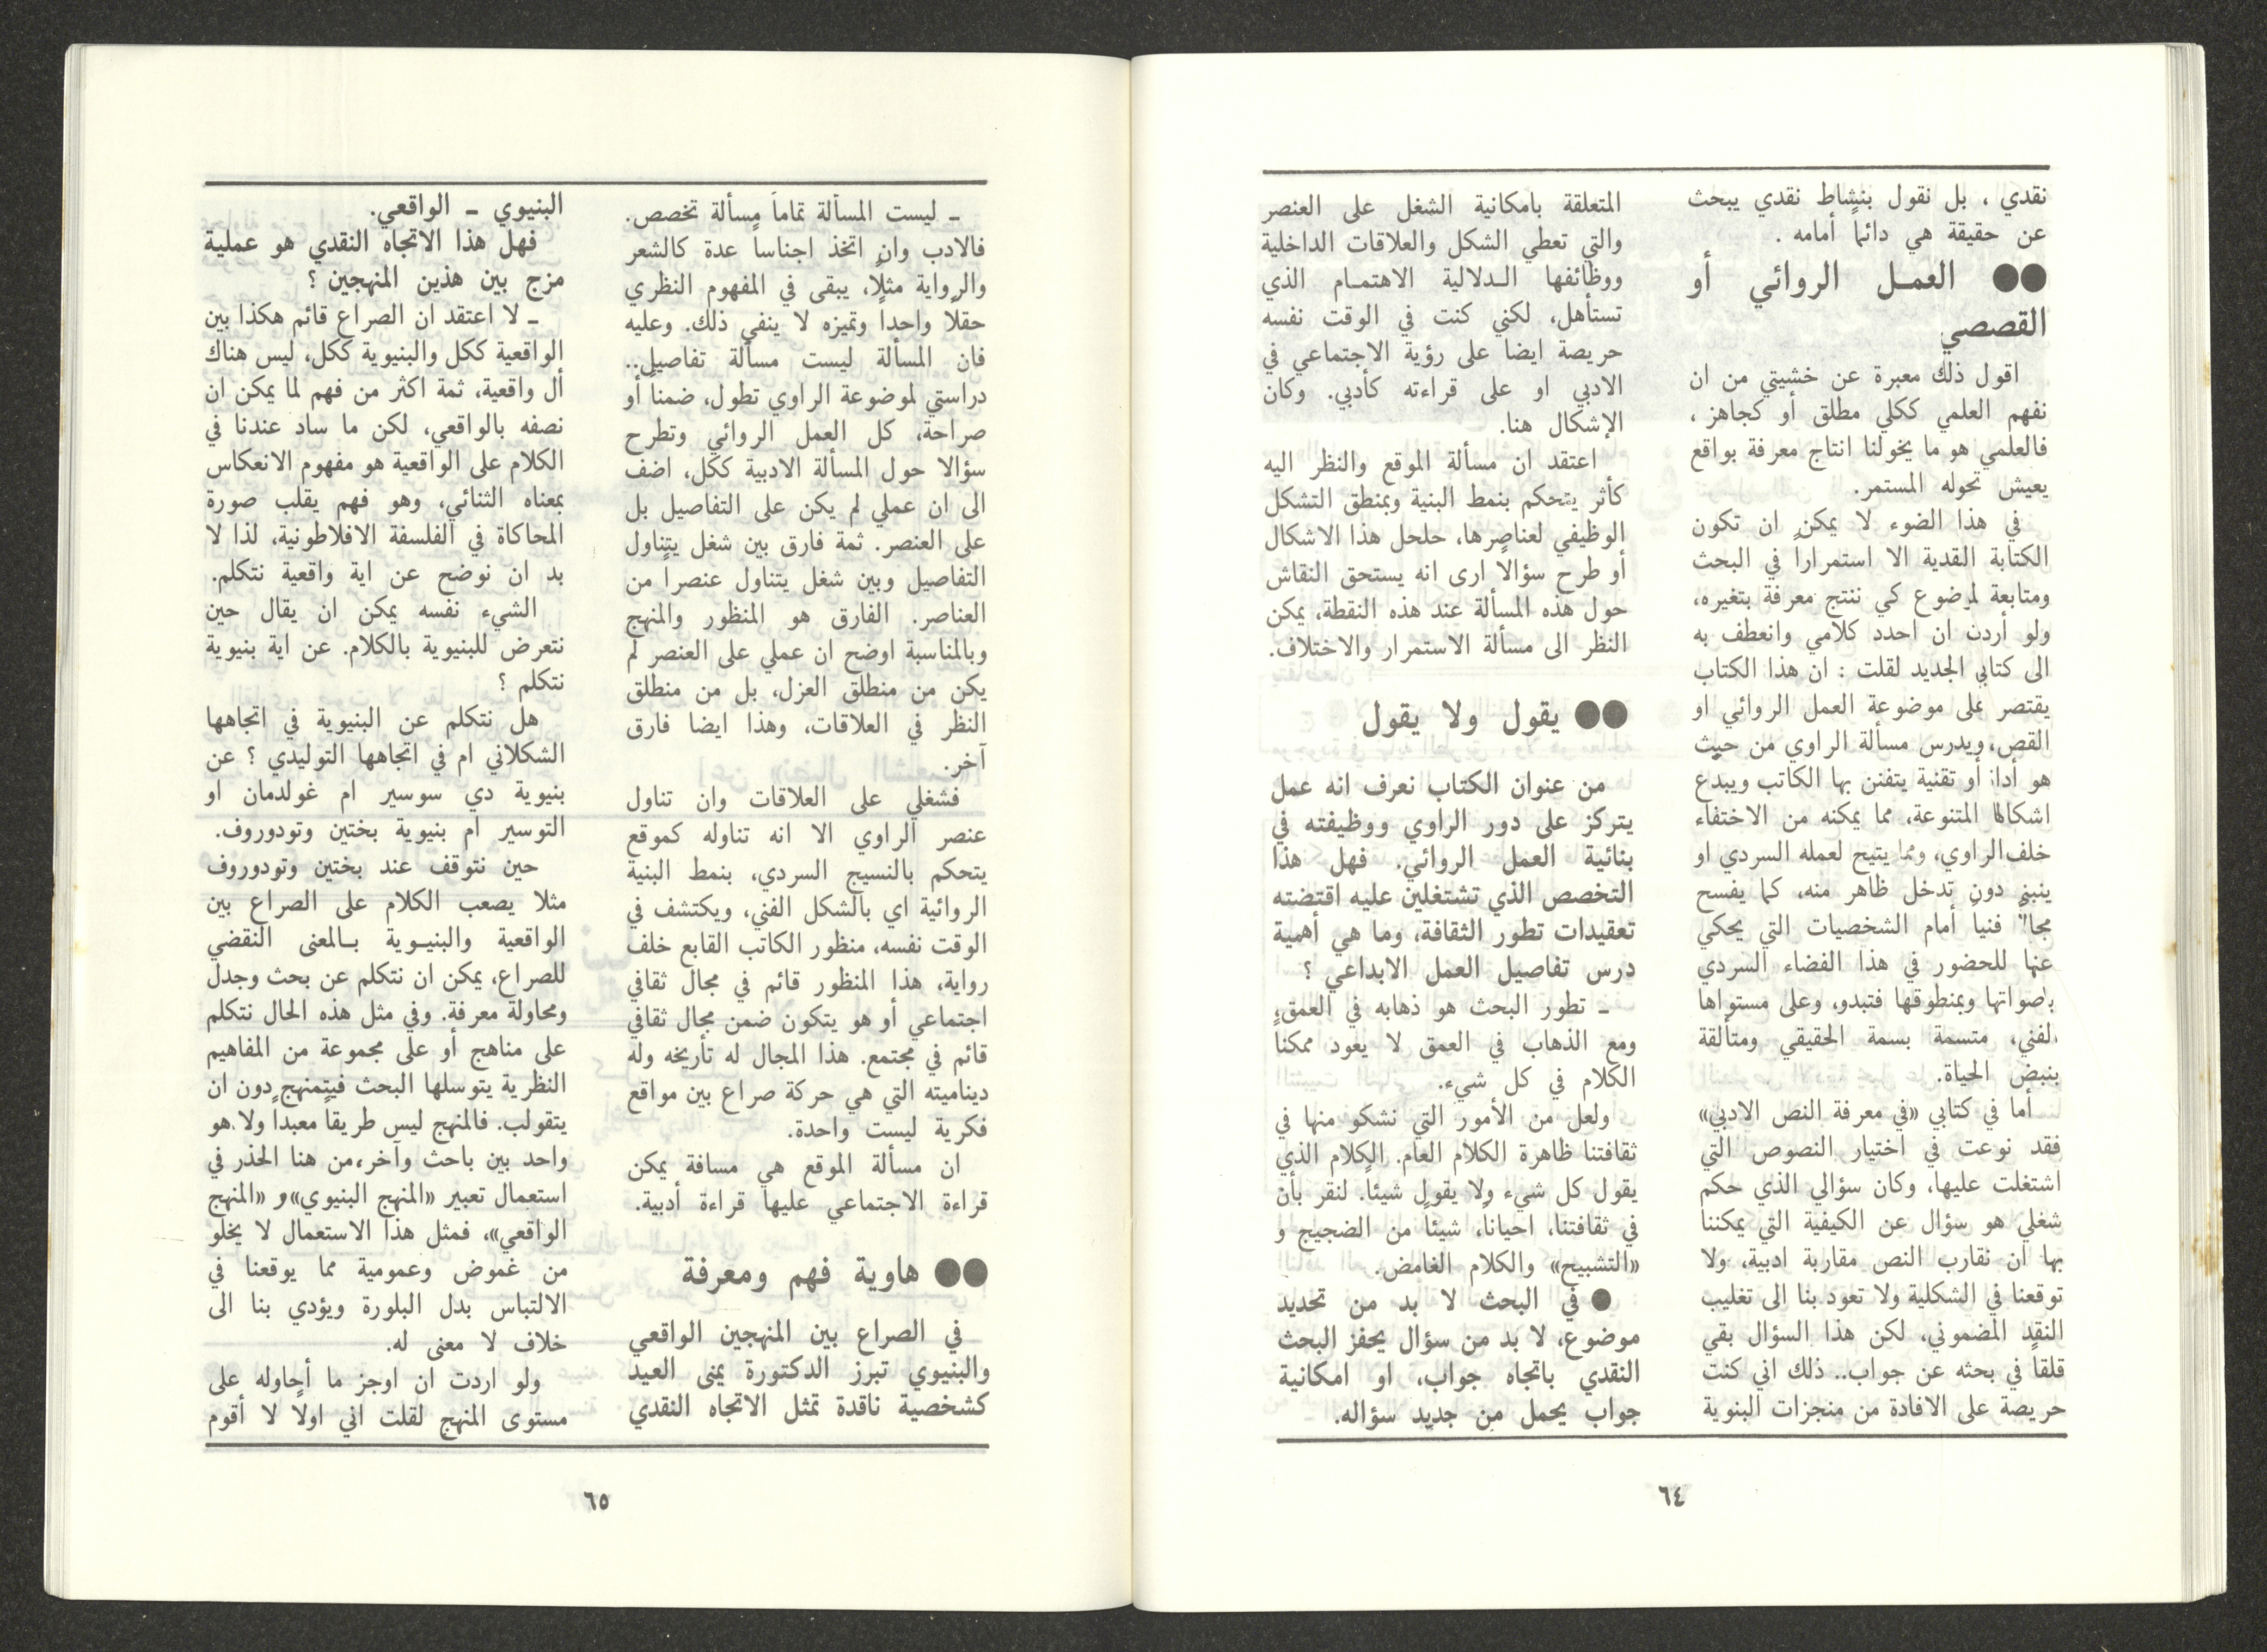 نقدي ، بل نقول بنشاط نقدي يبحث
عن حقيقة هي دائماً أمامه .
●● العمـل الروائي أو
القصصي
اقول ذلك معبرة عن خشيتي من ان
نفهم العلمي ككلي مطلق أو كجاهز ،
فالعلمي هو ما يخولنا انتاج معرفة بواقع
يعيش تحوله المستمر.
في هذا الضوء لا يمكن ان تكون
الكتابة القدية الا استمراراً في البحث
ومتابعة لموضوع كي ننتج معرفة بتغيره،
ولو أردت ان احدد كلامي وانعطف به
الى كتابي الجديد لقلت : ان هذا الكتاب
يقتصر على موضوعة العمل الروائي او
القص، ويدرس مسألة الراوي من حيث
هو أداة أو تقنية يتفنن بها الكاتب ويبدع
اشكالها المتنوعة، مما يمكنه من الاختفاء
خلف الراوي، ومما يتيح لعمله السردي او
ينبني دون تدخل ظاهر منه، كما يفسح
مجالاً فنياً أمام الشخصيات التي يحكي
عنها للحضور في هذا الفضاء السردي
باصواتها وبمنطوقها فتبدو، وعلى مستواها
الفني، متسمة بسمة الحقيقي ومتألقة
بنبض الحياة.
أما في كتابي «في معرفة النص الادبي»
فقد نوعت في اختيار النصوص التي
اشتغلت عليها، وكان سؤالي الذي حكم
شغلي هو سؤال عن الكيفية التي يمكننا
بها ان نقارب النص مقاربة ادبية، ولا
توقعنا في الشكلية ولا تعود بنا الى تغليب
النقد المضموني، لكن هذا السؤال بقي
قلقاً في بحثه عن جواب.. ذلك اني كنت
حريصة على الافادة من منجزات البنوية
المتعلقة بامكانية الشغل على العنصر
والتي تعطي الشكل والعلاقات الداخلية
ووظائفها الـدلالية الاهتمـام الذي
تستأهل، لكني كنت في الوقت نفسه
حريصة ايضا على رؤية الاجتماعي في
الادبي او على قراءته كأدبي. وكان
الإشكال هنا.
اعتقد ان مسألة الموقع والنظر اليه
كأثر يتحكم بنمط البنية وبمنطق التشكل
الوظيفي لعناصرها، حلحل هذا الاشكال
أو طرح سؤالاً ارى انه يستحق النقاش
حول هذه المسألة عند هذه النقطة، يمكن
النظر الى مسألة الاستمرار والاختلاف.
●● يقول ولا يقول
من عنوان الكتاب نعرف انه عمل
يتركز على دور الراوي ووظيفته في
بنائية العمل الروائي. فهل هذا
التخصص الذي تشتغلين عليه اقتضته
تعقيدات تطور الثقافة، وما هي أهمية
درس تفاصيل العمل الابداعي ؟
ـ تطور البحث هو ذهابه في العمق،
ومع الذهاب في العمق لا يعود ممكناً
الكلام في كل شيء.
ولعل من الأمور التي نشكو منها في
ثقافتنا ظاهرة الكلام العام. الكلام الذي
يقول كل شيء ولا يقول شيئاً. لنقر بأن
في ثقافتنا، احياناً، شيئاً من الضجيج و
«التشبيح» والكلام الغامض.
● في البحث لا بد من تحديد
موضوع، لا بد من سؤال يحفز البحث
النقدي باتجاه جواب، او امكانية
جواب يحمل من جديد سؤاله.
٦٤
ـ ليست المسألة تماماً مسألة تخصص.
فالادب وان اتخذ اجناساً عدة كالشعر
والرواية مثلاً، يبقى في المفهوم النظري
حقلاً واحداً وتميزه لا ينفي ذلك. وعليه
فان المسألة ليست مسألة تفاصيل..
دراستي لموضوعة الراوي تطول، ضمناً أو
صراحة، كل العمل الروائي وتطرح
سؤالا حول المسألة الادبية ككل، اضف
الى ان عملي لم يكن على التفاصيل بل
على العنصر. ثمة فارق بين شغل يتناول
التفاصيل وبين شغل يتناول عنصراً من
العناصر. الفارق هو المنظور والمنهج
وبالمناسبة اوضح ان عملي على العنصر لم
يكن من منطلق العزل، بل من منطلق
النظر في العلاقات، وهذا ايضا فارق
آخر.
فشغلي على العلاقات وان تناول
عنصر الراوي الا انه تناوله كموقع
يتحكم بالنسيج السردي، بنمط البنية
الروائية اي بالشكل الفني، ويكتشف في
الوقت نفسه، منظور الكاتب القابع خلف
رواية، هذا المنظور قائم في مجال ثقافي
اجتماعي أو هو يتكون ضمن مجال ثقافي
قائم في مجتمع. هذا المجال له تأريخه وله
ديناميته التي هي حركة صراع بين مواقع
فكرية ليست واحدة.
ان مسألة الموقع هي مسافة يمكن
قراءة الاجتماعي عليها قراءة أدبية.
●● هاوية فهم ومعرفة
في الصراع بين المنهجين الواقعي
والبنيوي تبرز الدكتورة يمنى العيد
كشخصية ناقدة تمثل الاتجاه النقدي
البنيوي ـ الواقعي.
فهل هذا الاتجاه النقدي هو عملية
مزج بين هذين المنهجين ؟
ـ لا اعتقد ان الصراع قائم هكذا بين
الواقعية ككل والبنيوية ككل، ليس هناك
أل واقعية، ثمة اكثر من فهم لما يمكن ان
نصفه بالواقعي، لكن ما ساد عندنا في
الكلام على الواقعية هو مفهوم الانعكاس
بمعناه الثنائي، وهو فهم يقلب صورة
المحاكاة في الفلسفة الافلاطونية، لذا لا
بد ان نوضح عن اية واقعية نتكلم.
الشيء نفسه يمكن ان يقال حين
نتعرض للبنيوية بالكلام. عن اية بنيوية
نتكلم ؟
هل نتكلم عن البنيوية في اتجاهها
الشكلاني ام في اتجاهها التوليدي ؟ عن
بنيوية دي سوسير ام غولدمان او
التوسير ام بنيوية بختين وتودوروف.
حين نتوقف عند بختين وتودوروف
مثلا يصعب الكلام على الصراع بين
الواقعية والبنيـوية بـالمعنى النقضي
للصراع، يمكن ان نتكلم عن بحث وجدل
ومحاولة معرفة. وفي مثل هذه الحال نتكلم
على مناهج أو على مجموعة من المفاهيم
النظرية يتوسلها البحث فيتمنهج دون ان
يتقولب. فالمنهج ليس طريقاً معبداً ولا هو
واحد بين باحث وآخر، من هنا الحذر في
استعمال تعبير «المنهج البنيوي» و «المنهج
الواقعي»، فمثل هذا الاستعمال لا يخلو
من غموض وعمومية مما يوقعنا في
الالتباس بدل البلورة ويؤدي بنا الى
خلاف لا معنى له.
ولو اردت ان اوجز ما أحاوله على
مستوى المنهج لقلت اني اولاً لا أقوم
٦٥